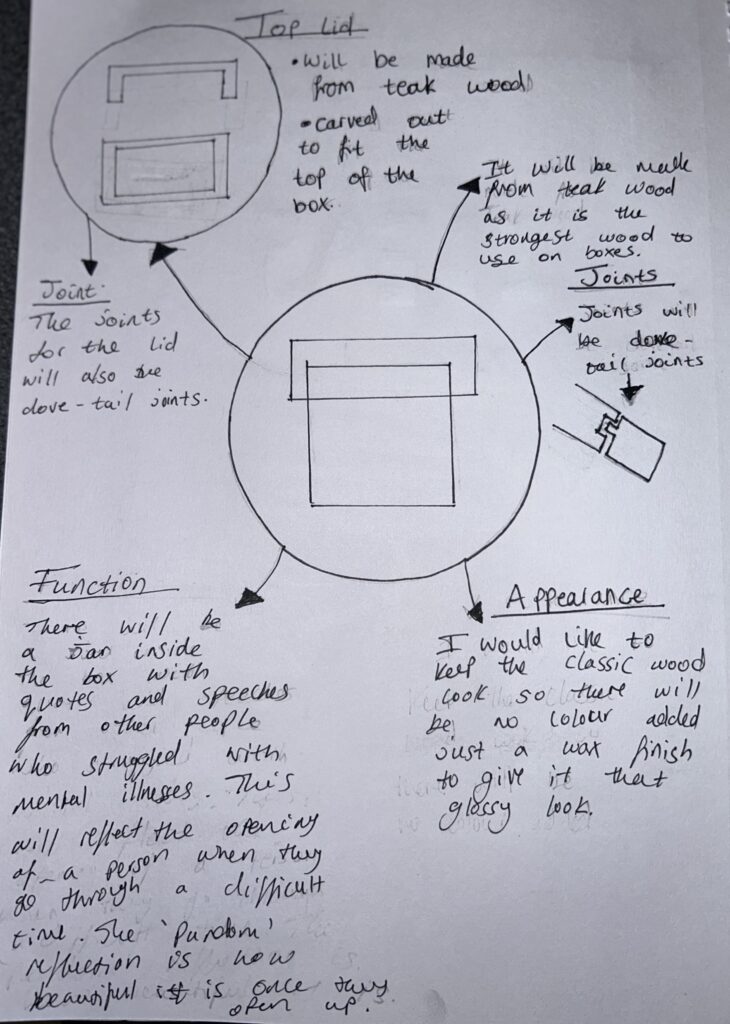 Top Lid
• Will be made
from teak wood
• carved out
to fit the
top of the
box.
It will be made
from teak wood
as it is the
strongest wood to
use on boxes.
Joints
Joints will
be dove-
tail joints
Joint:
The joints
for the lid
will also be
dove-tail joints.
Function
There will be
a Jar inside
the box with
quotes and speeches
from other people
who struggled with
mental illnesses. This
will reflect the opening
of a person when they
go through a difficult
time. The '
reflection is how
beautiful it is once they
open up.
Appearance
I would like to
keep the classic wood
look so there will
be no colour added
just a wax finish
to give it that
glossy look.